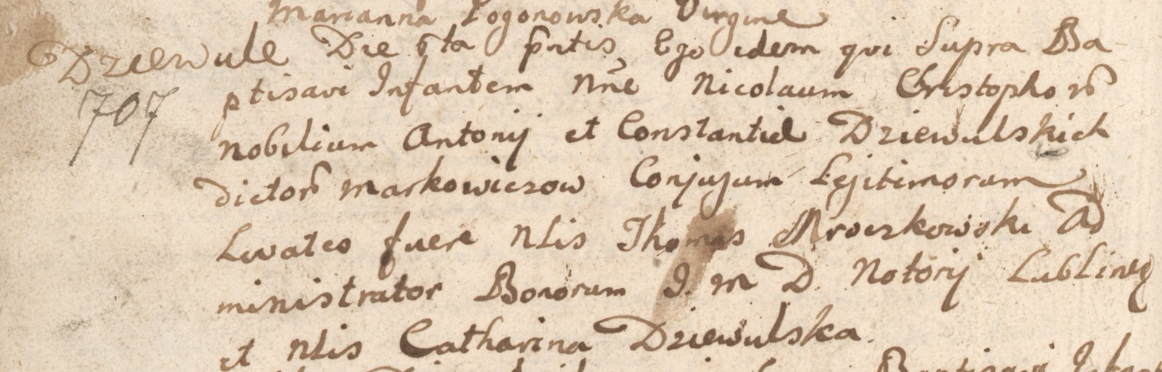 Marianna Pogonowska Virgine
Dziewule Die 6ta prtis Ego idem qui Supra Ba
ptisavi Infantem nne Nicolaum Christophorũ
707
nobilium Antonij et Constantiæ Dziewulskich
dictorũ Markowiczow Conjugum Legitimorum
Levates fuere Nlis Thomas Mroczkowski Ad
ministrator Bonorum J. M D. Notorij
et Nlis Catharina Dziewulska.
Baptisavi